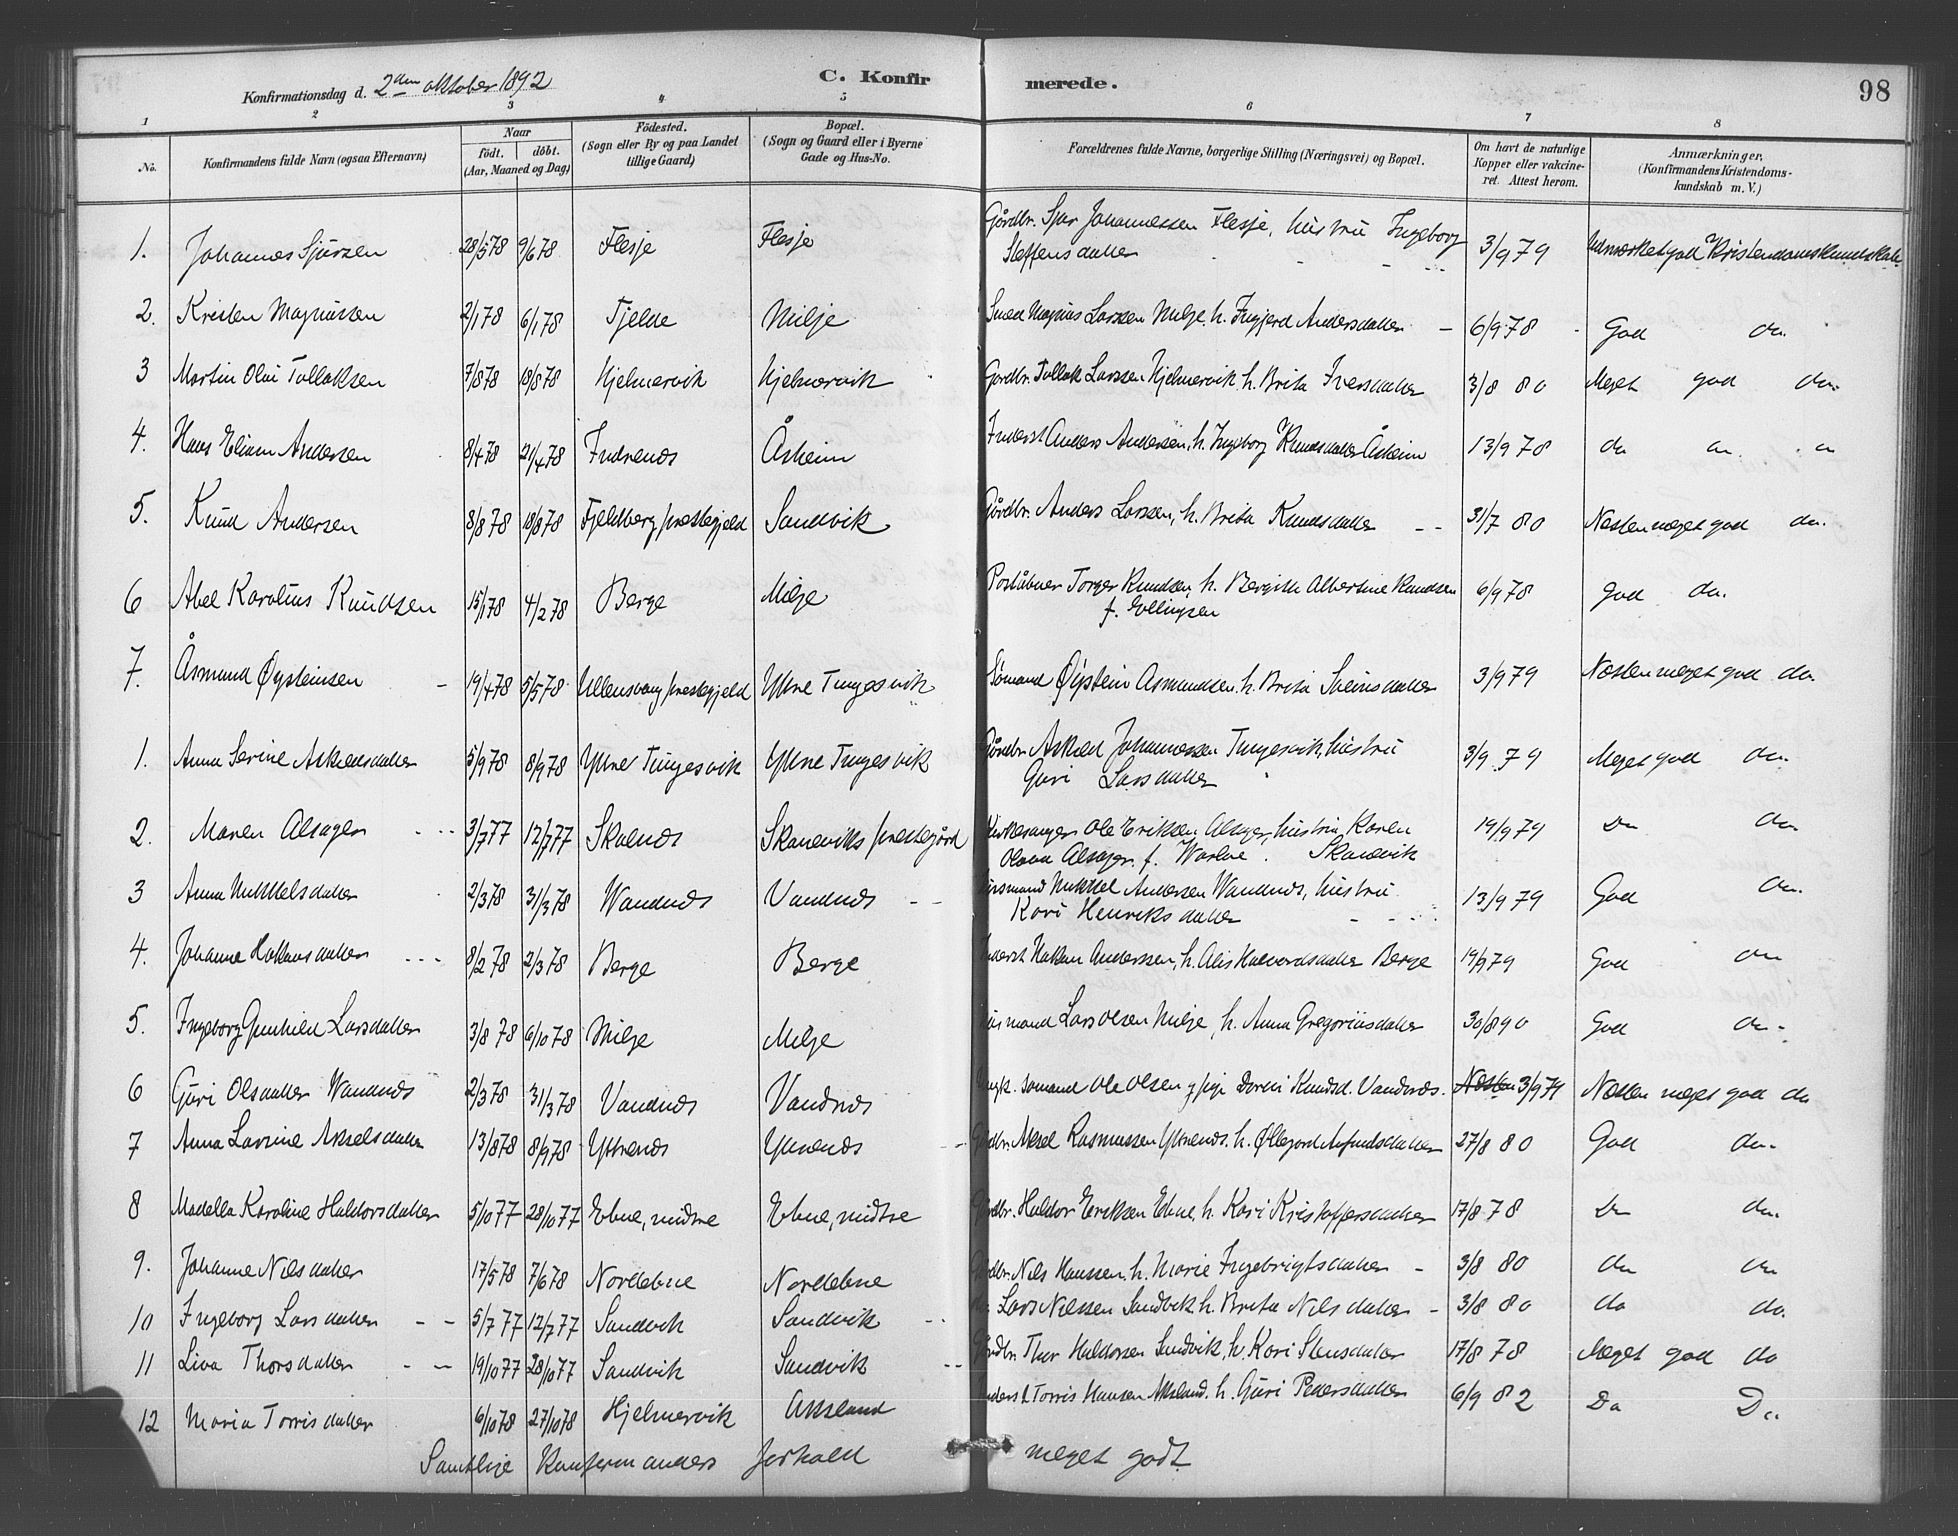 98
C. Konfirmerede.
Konfirmationsdag d. 2den oktober 1892
1 2 3 4 5 6 7 8
No. Konfirmandens fulde Navn (ogsaa Efternavn)
Naar født. døbt. (Aar, Maaned og Dag)
Fødested. (Sogn eller By og paa Landet tillige Gaard)
Bopæl. (Sogn og Gaard eller i Byerne Gade og Hus-No.
Forældrenes fulde Navne, borgerlige Stilling (Næringsvei) og Bopæl.
Om havt de naturlige Kopper eller vakcineret. Attest herom.
Anmærkninger, (Konfirmandens Kristendomskundskab m. V.)
1. Johannes Sjursen 28/5 78 9/6 78 Flesje Flesje Gårdbr. Sjur Johannessen Flesje, hustru Ingeborg Steffensdatter 3/9 79 Udmærket god Kristendomskundskab
2. Kristen Magnussen 2/1 78 6/1 78 Tjelde Milje Smed Magnus Larssen Milje h. Ingjerd Andersdatter 6/9 78 God do.
3 Martin Olai Tollaksen 7/8 78 18/8 78 Hjelmervik Hjelmervik Gardbr. Tollak Larssen Hjelmervik, h. Brita Iversdatter 3/8 80 Meget god do.
4. Hans Eliam Andersen 8/4 78 21/4 78 Indrenes Åsheim Inderst Anders Andersen, h. Ingeborg Knudsdatter Åsheim 13/9 78 do do do
5. Knud Andersen 8/8 78 18/8 78 Fjeldberg prestegjeld Sandvik Gårdbr. Anders Larssen, h. Brita Knudsdatter 31/7 80 Næsten meget god do.
6 Abel Karolius Knudsen 15/1 78 4/2 78 Berge Milje Poståbner Torger Knudsen, h. Bergith Albertine Knudsen f. Ellingsen 6/9 78 god do.
7. Åsmund Øysteinsen 19/4 78 5/5 78 Ullensvang prestegjeld Yttre Tungesvik Sømand Øystein Asmundsen, h. Brita Sveinsdatter 3/9 79 Næsten meget god do.
1. Anna Serine Askeldsdatter 5/9 78 8/9 78 Yttre Tungesvik Yttre Tungesvik Gårdbr. Askeld Johannessen Tungesvik, hustru Guri Larsdatter 3/9 79 Meget god do.
2. Maren Alsager 3/7 77 12/7 77 Skålnes Skaneviks prestegård Kirkesanger Ole Eriksen Alsager, hustru Karen Olava Alsager f. Skanevik 19/9 79 Do do.
3 Anna Mikkelsdatter 2/3 78 31/3 78 Wandnes Vandnes Husmand Mikkel Andersen Wandnes, hustru Kari Henriksdatter 13/9 79 God do.
4. Johanne Hakansdatter 8/2 78 2/3 78 Berge Berge Inderst Hakan Anderssen, h. Alis Halvordsdatter Berge 19/9 79 God do
5. Ingeborg Gunhild Larsdatter 3/8 78 6/10 78 Milje Milje Husmand Lars Olsen Milje, h. Anna Gregoriusdatter 30/8 90 God do.
6 Guri Olsdatter Wandnes 2/3 78 31/3 78 Vandnes Vandnes Ungk. sømand Ole Olsen g pige Dorthi Knudsd. Vandnes. Næsten 3/9 79 Næsten meget god do
7 Anna Lavrine Akselsdatter 13/8 78 8/9 78 Yttrenes Yttrenes Gårdbr. Aksel Rasmussen Yttrenes. h. Øllegjord Arfindsdatter 27/8 80 God do.
8 Madella Karoline Haldorsdatter 5/10 77 28/10 77 Ebne, midtre Ebne, midtre Gårdbr. Haldor Eriksen Ebne, h. Kari Kristoffersdatter 17/8 78 Do do.
9. Johanne Nilsdatter 17/5 78 7/6 78 Nordebne Nordebne Gårdbr. Nils Hanssen, h. Marie Ingebrigtsdatter 3/8 80 do do
10 Ingeborg Larsdatter 5/7 77 12/7 77 Sandvik Sandvik do. Lars Nilssen Sandvik h. Brita Nilsdatter 3/8 80 do do.
11 Liva Thorsdatter 19/10 77 28/10 77 Sandvik Sandvik Gårdbr. Thor Haldorsen Sandvik, h. Kari Stensdatter 17/8 78 Meget god do
12 Maria Torrisdatter 6/10 78 27/10 78 Hjelmervik Aksland Inderst Torris Hansen Aksland. h. Guri Pedersdatter 6/9 82 Do Do
Samtlige Konfirmanders Forhold meget godt